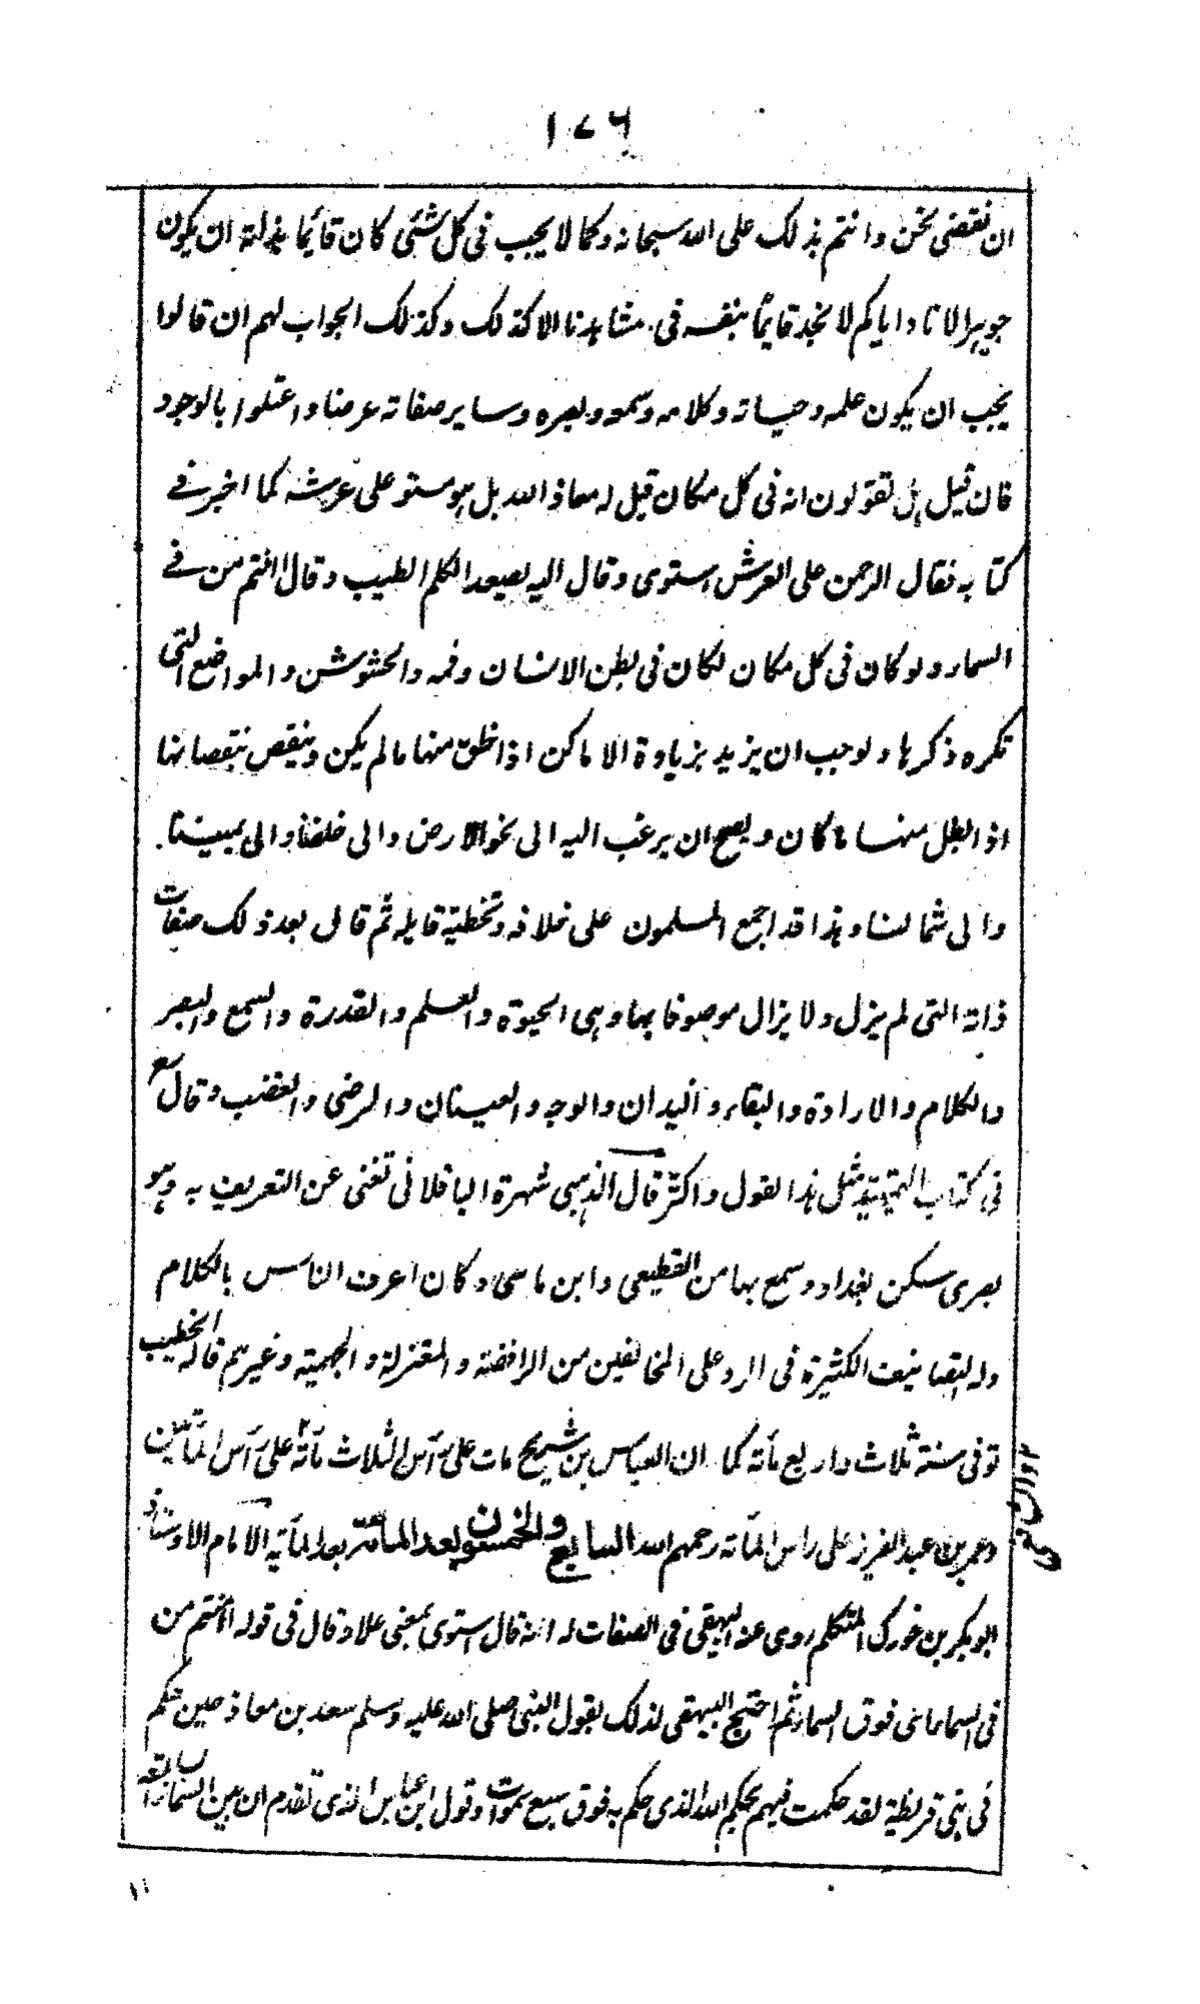 ١٧٦
ان نقضى نحن وانتم بذلك على الله سبحانه وكما لا يجب فى كل شئى كان قايما بذاته ان يكون
جوهرا لانا واياكم لا نجد قايما بنفسه فى مشاهدنا الا كذلك وكذلك الجواب لهم ان قالوا
يجب ان يكون علمه وحياته وكلامه وسمعه وبصره وساير صفاته عرضا واعتلوا بالوجود
فان قيل هل تقولون انه فى كل مكان قيل له معاذ الله بل هو مستو على عرشه كما اخبر فے
كتابه فقال الرحمن على العرش استوى وقال اليه يصعد الكلم الطيب وقال أأمنتم من فے
السماء ولو كان فى كل مكان لكان فى بطن الانسان وفمه والحشوش والمواضع التى
تكره ذكرها ولوجب ان يزيد بزيادة الاماكن اذا خلق منها ما لم يكن وينقص بنقصانها
اذا بطل منها ما كان ويصح ان يرغب اليه الى نحو الارض والى خلفنا والى يميننا
والى شمالنا وهذا قد اجمع المسلمون على خلافه وتخطية قايله ثم قال بعد ذلك صفات
ذاته التى لم يزل ولا يزال موصوفا بها وهى الحيوة والعلم والقدرة والسمع والبصر
والكلام والارادة والبقاء واليدان والوجه والعينان والرضى والغضب وقال
فى كتاب التمهيد مثل هذا القول واكثر قال الذهبى شهرة الباقلانى تغنى عن التعريف به وهو
بصرى سكن بغداد وسمع بها من القطيعى وابن ماسى وكان اعرف الناس بالكلام
وله التصانيف الكثيرة فى الرد على المخالفين من الرافضة والمعتزلة والجهمية وغيرهم قاله الخطيب
توفى سنة ثلاث واربع مأته كما ان العباس بن شريح مات على رأس الثلاث مأته على رأس المأتين
وعمر بن عبد العزيز على راس المأته رحمهم الله السابع والخمسون بعد المأته بعد المأته الامام الاوستاذ
ابو بكر بن فورك المتكلم روى عنه البيهقى فى الصفات له انه قال استوى بمعنى علا وقال فى قوله أأمنتم من
فى السماء اى فوق السماء ثم احتج البيهقى لذلك بقول النبى صلى الله عليه وسلم سعد بن معاذ حين حكم
فى بنى قريظة لقد حكمت فيهم بحكم الله الذى حكم به فوق سبع سموات وقول ابن عباس الذى تقدم ان بين السماء السابعة